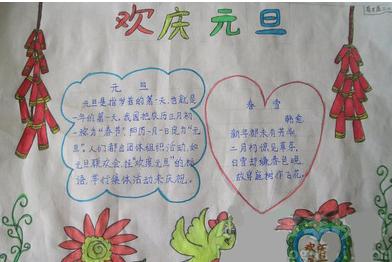 欢庆元旦
元旦
元旦是指岁首的第一天,也就是
一年的第一天,我国把农历正月初
一称为"春节",阳历一月一日定为"元
旦",人们都自团体组织活动,如
元旦联欢会,挂"欢度元旦"的标
语,举行集体活动来庆祝。
春雪
韩愈
新年都未有芳华
二月初惊见草芽。
白雪却嫌春色晚
故穿庭树作飞花。
欢乐